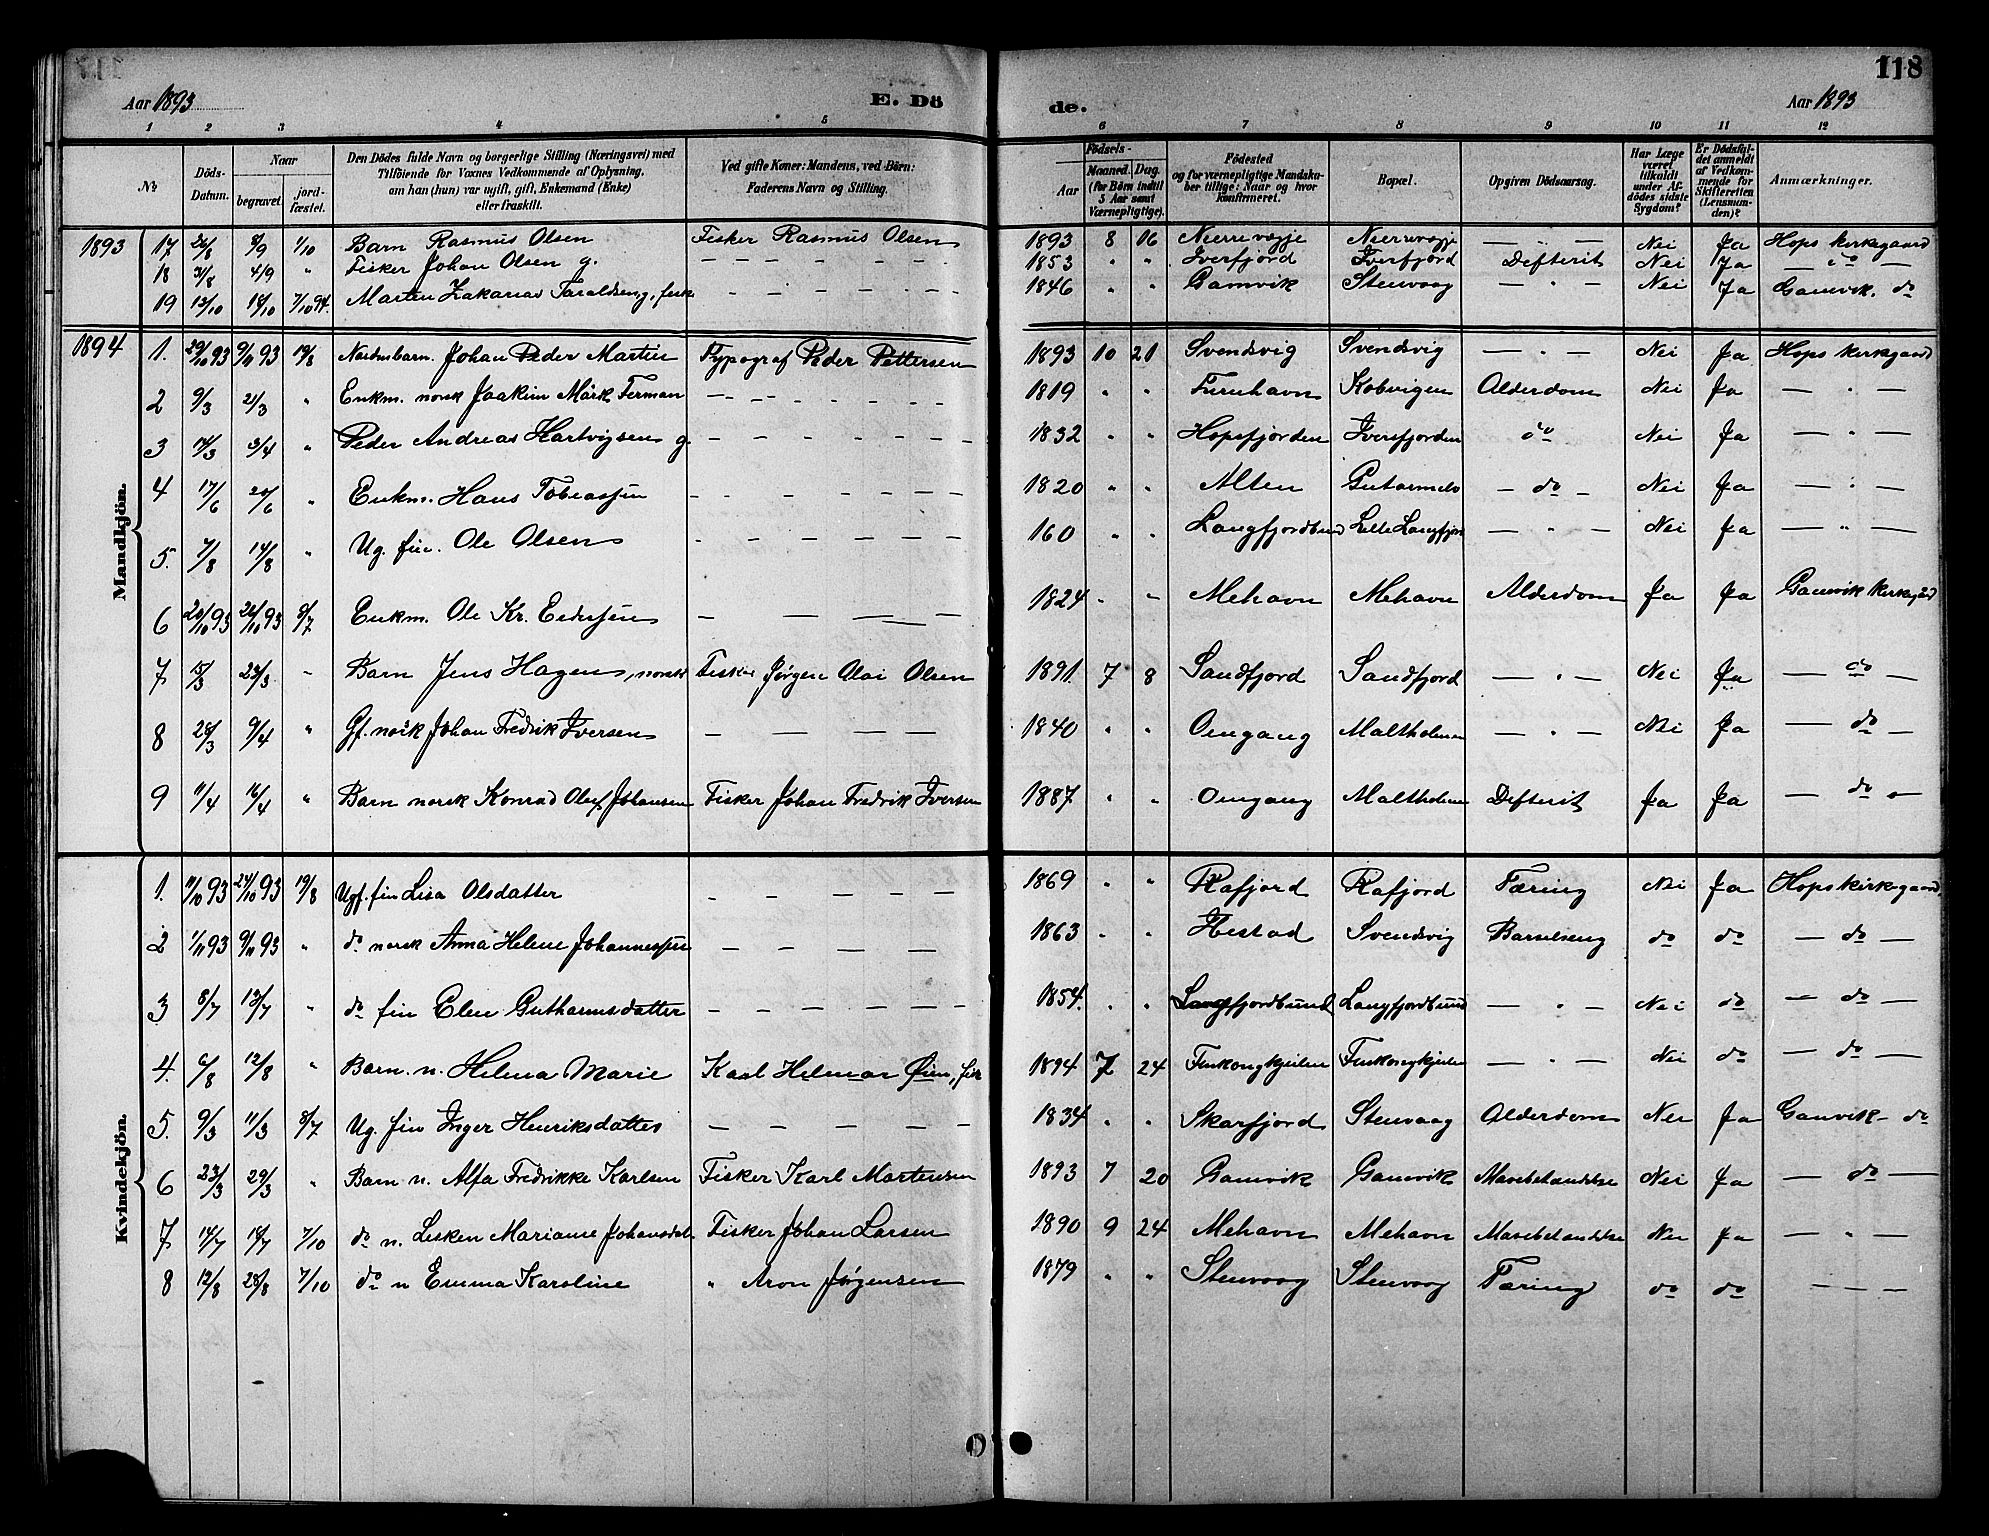 118
Aar 1893 E. Dö de. Aar 1893
1 2 3 4 5 6 7 8 9 10 11 12
No
Döds-Datum.
Naar begravet. jordfæstet.
Den Dödes fulde Navn og borgerlige Stilling (Næringsvei) med Tilföiende for Voxnes Vedkommende af Oplysning, om han (hun) var ugift, gift, Enkemand (Enke) eller fraskilt.
Ved gifte Koner: Mandens, ved Börn: Faderens Navn og Stilling.
Födsels-Aar Maaned. Dag. (for Börn indtil 5 Aar samt Værnepligtige).
Födested og for værnepligtige Mandskaber tillige: Naar og hvor konfirmeret.
Bopæl.
Opgiven Dödsaarsag.
Har Læge været tilkaldt under Afdödes sidste Sygdom?
Er Dödsfaldet anmeldt af Vedkommende for Skifteretten (Lensmanden)?
Anmærkninger.
1893 17 26/8 3/9 1/10 Barn Rasmus Olsen Fisker Rasmus Olsen 1893 8 16 — " — Nei Ja Hops kirkegaard
18 31/8 4/9 " Fisker Johan Olsen g. — 1853 " " Iversfjord Iversfjord Defterit Nei Ja — do —
19 13/10 18/10 7/10 94. Marten Zakarias Taraldsen g, fisk — 1846 " " Gamvik Stenvaag — " — Nei Ja Gamvik. do
Mandkjön.
1894 1. 29/10 93 9/11 93 19/8 Johan Peder Martin Typograf Peder Pettersen 1893 10 21 Svendsvig Svendsvig — " — Nei Ja Hops kirkegaard
2 9/3 21/3 " Enkm. norsk Joakim Mörk Ferman — 1819 " " Furuhavn Kobvigen Alderdom Nei Ja — " —
3 14/3 3/4 " Peder Andreas Hartvigsen g — 1832 " " Hopsfjorden Iversfjorden do Nei Ja — " —
4 17/6 20/6 " Enkm. Hans Tobiassen — 1820 " " Alten — do — Nei Ja — " —
5. 7/8 14/8 " Ug. fin. Ole Olsen — 160 " " Langfjordbund Lille Langfjor — " — Nei Ja — " —
6 20/10 93 26/10 93 8/7 Enkm. Ole Kr. Pederssen — 1824 " " Mehavn Mehavn Alderdom Ja Ja Gamvik kirkegård
7 15/3 23/3 " Barn Jens Hagen, norsk Fisker Jørgen Olai Olsen 1891. 7 8 Sandfjord Sandfjord — " — Nei Ja — do —
8 28/3 9/4 " Gf. norsk Johan Fredrik Iversen — 1840 " " Omgang Maltholmen — " — Nei Ja — do —
9 11/4 16/4 " Barn norsk Konrad Oluf Johansen Fisker Johan Fredrik Iversen 1887 " " Omgang Maltholmen Defterit Ja Ja — do —
Kvindekjön.
1. 11/10 93 24/10 93 19/8 Ugf. fin Lisa Olsdatter — 1869 " " Rafjord Rafjord Tæring Nei Ja Hops kirkegaard
2 1/11 93 9/11 93 " do norsk Anna Helene Johannessen — 1863 " " Hestad Svendsvig Barselseng do do — do —
3 8/7 13/7 " do fin Elen Guthormsdatter — 1854. " " Langfjordbund Langfjordbund — " — Nei do — do —
4. 6/8 12/8 " Barn. n. Helma Marie Karl Helmar Øien, fisk 1894 7 24 Finkongkjeilen Finkongkjeilen — " — Nei do — do —
5. 9/3 11/3 8/7 Ug. fin Inger Henriksdatter — 1834 " " Skarfjord Stenvaag Alderdom Nei Ja Gamvik - do
6 23/3 29/3 " Barn n. Alfa Fredrikke Karlsen Fisker Karl Martensen 1893 7 20 Gamvik Gamvik Nei Ja — do —
7 14/7 18/7 7/10 do n. Marianne Johansdat Fisker Johan Larsen 1890 9 24 Mehavn Mehavn Nei Ja — " —
8 12/8 28/8 7/10 do n Emma Karoline " Aron Jørgensen 1879 " " Stenvaag Stenvaag Tæring do do — — —